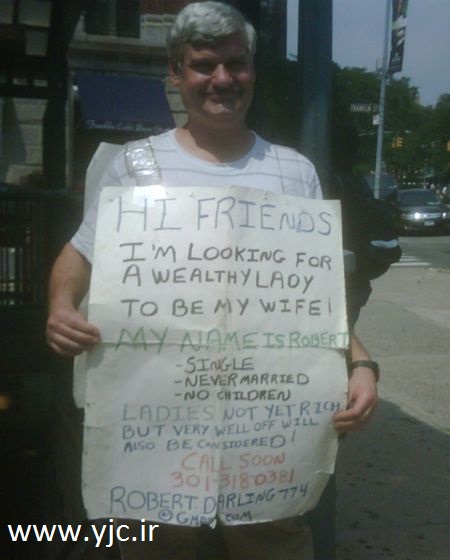 HI FRIENDS
I'M LOOKING FOR
A WEALTHY LADY
TO BE MY WIFE!
MY NAME IS ROBERT
-SINGLE
-NEVER MARRIED
-NO CHILDREN
LADIES NOT YET RICH
BUT VERY WELL OFF WILL
ALSO BE CONSIDERED!
CALL SOON
301-318-0381
ROBERT.DARLING774
FRANKLIN ST
www.yjc.ir